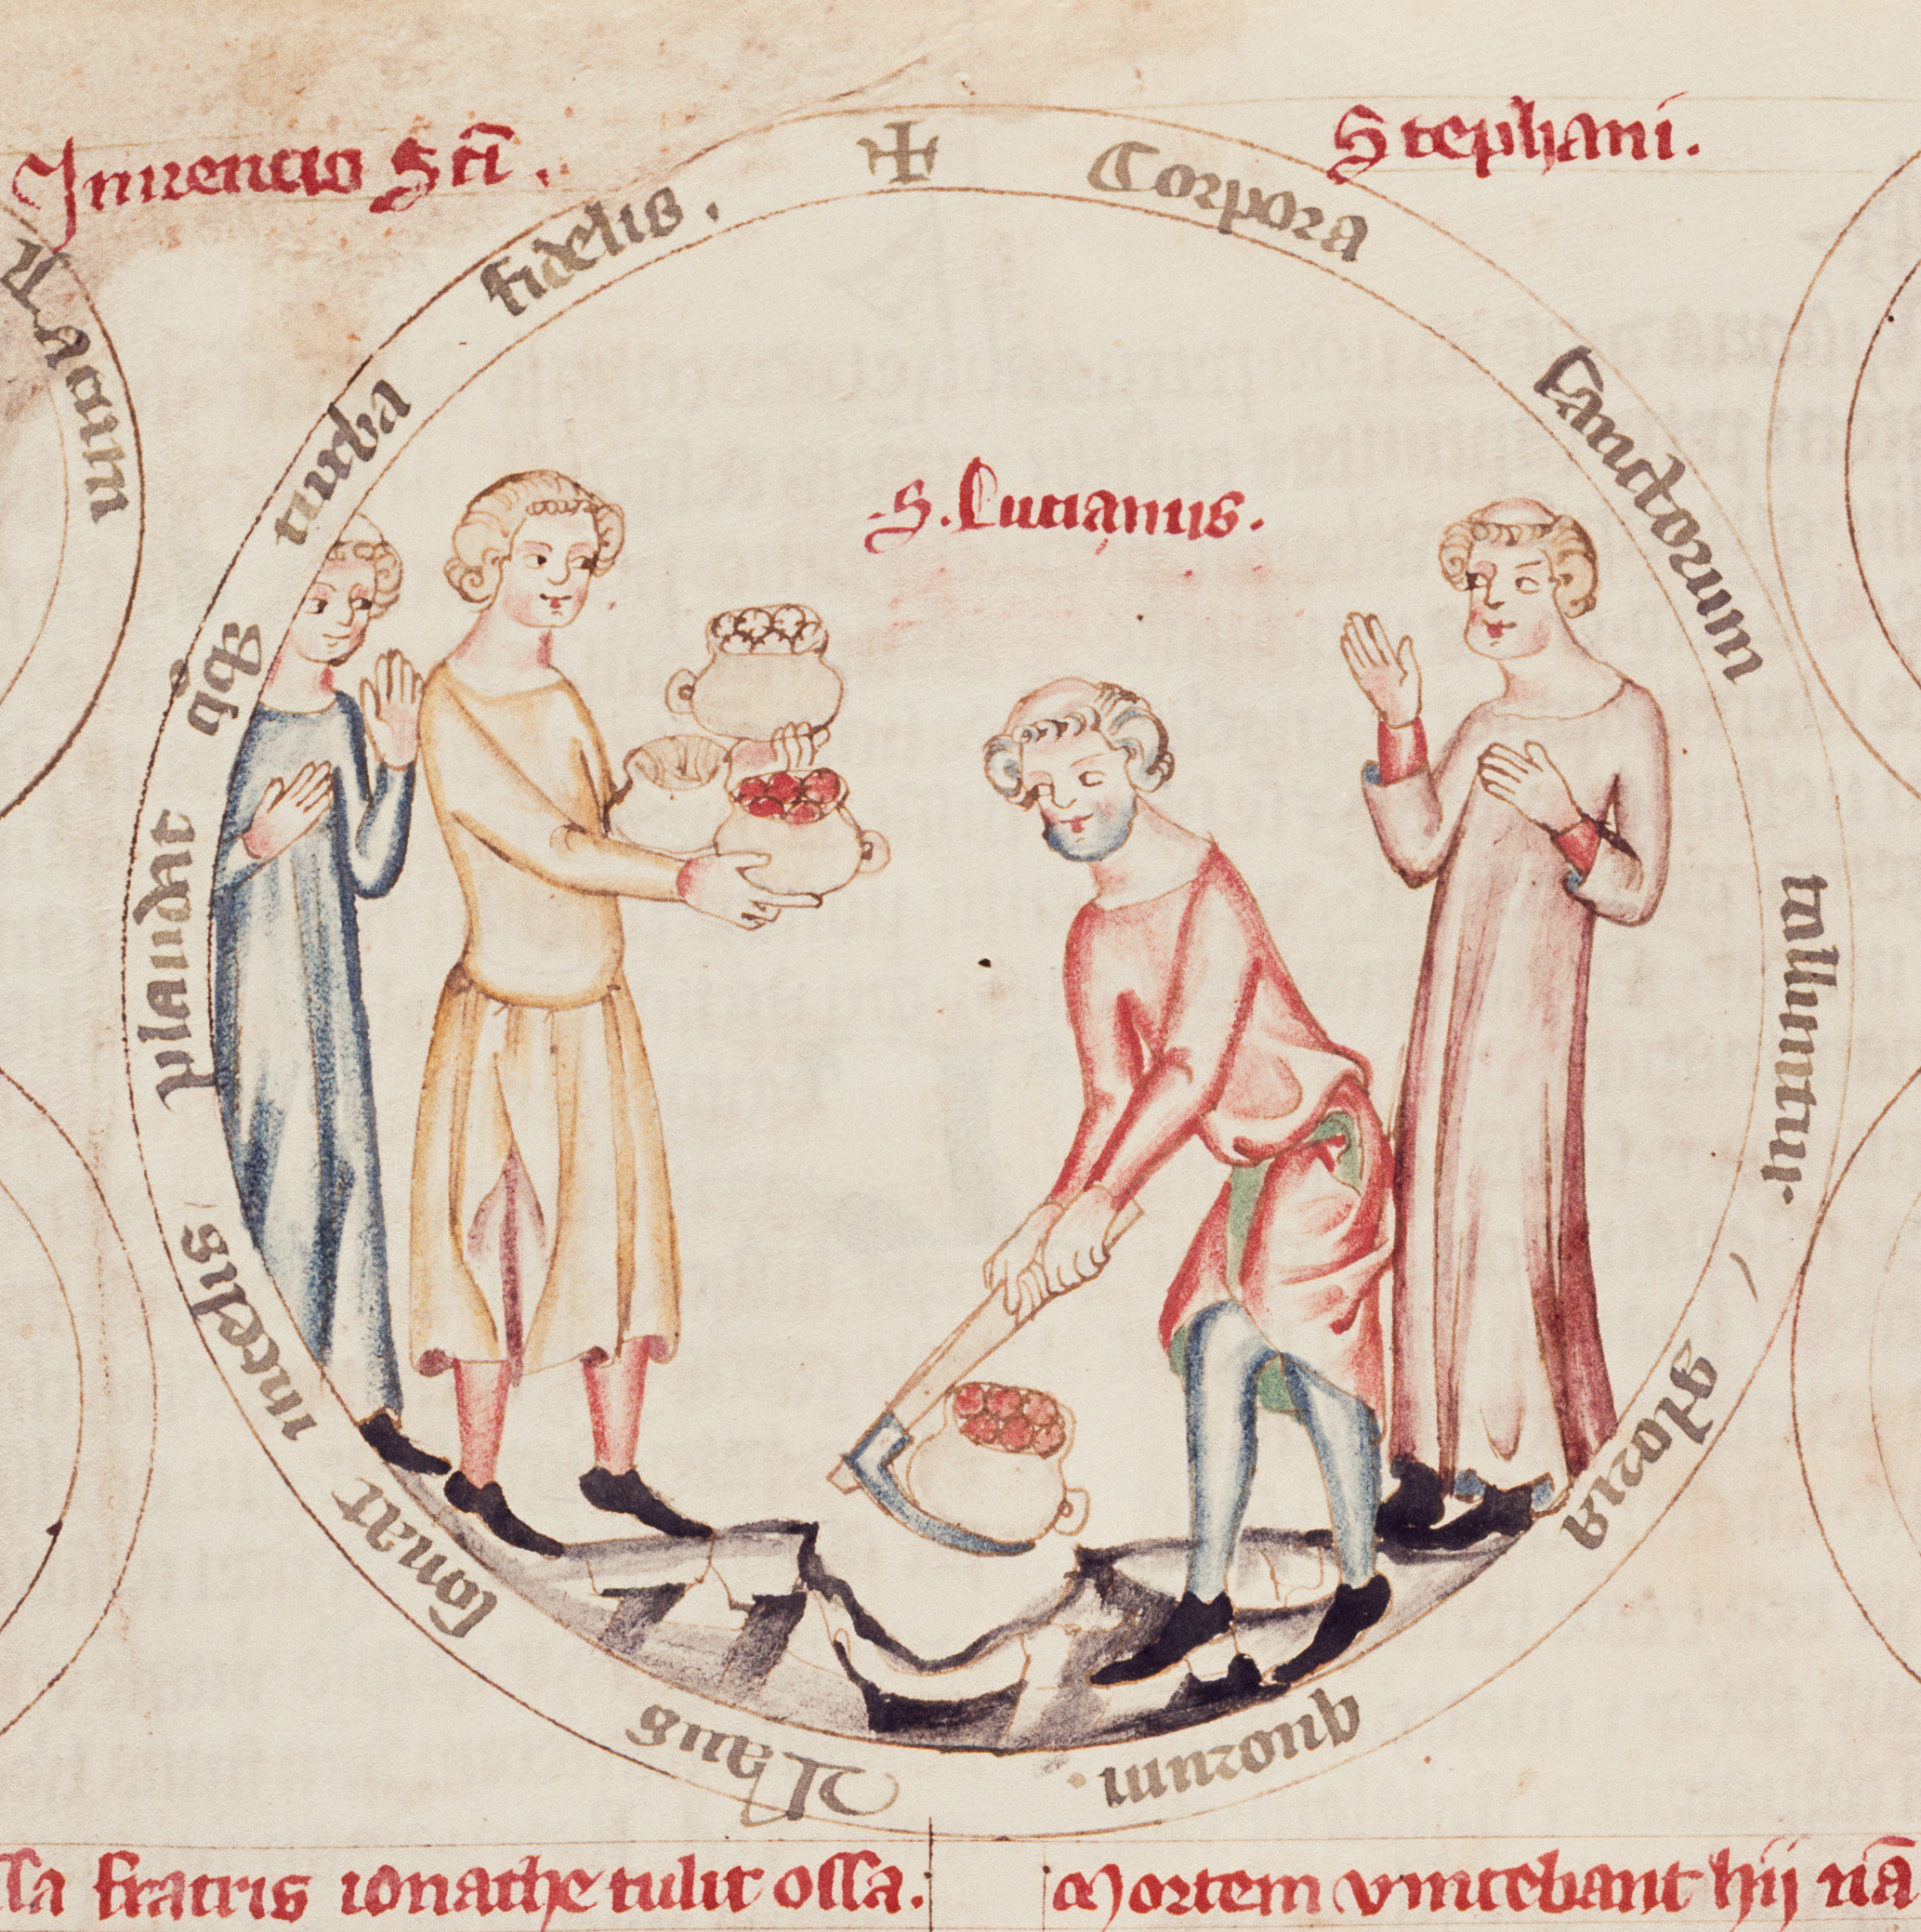 Inuencio Sci̅. Stephani.
✠ Corpora sanctorum tolluntur. gloria quorum. Laus sonat in celis plaudat q̊q; turba fidelis.
S. Lucianus.
fratris ionathe tulit ossa. Mortem vincebant hij